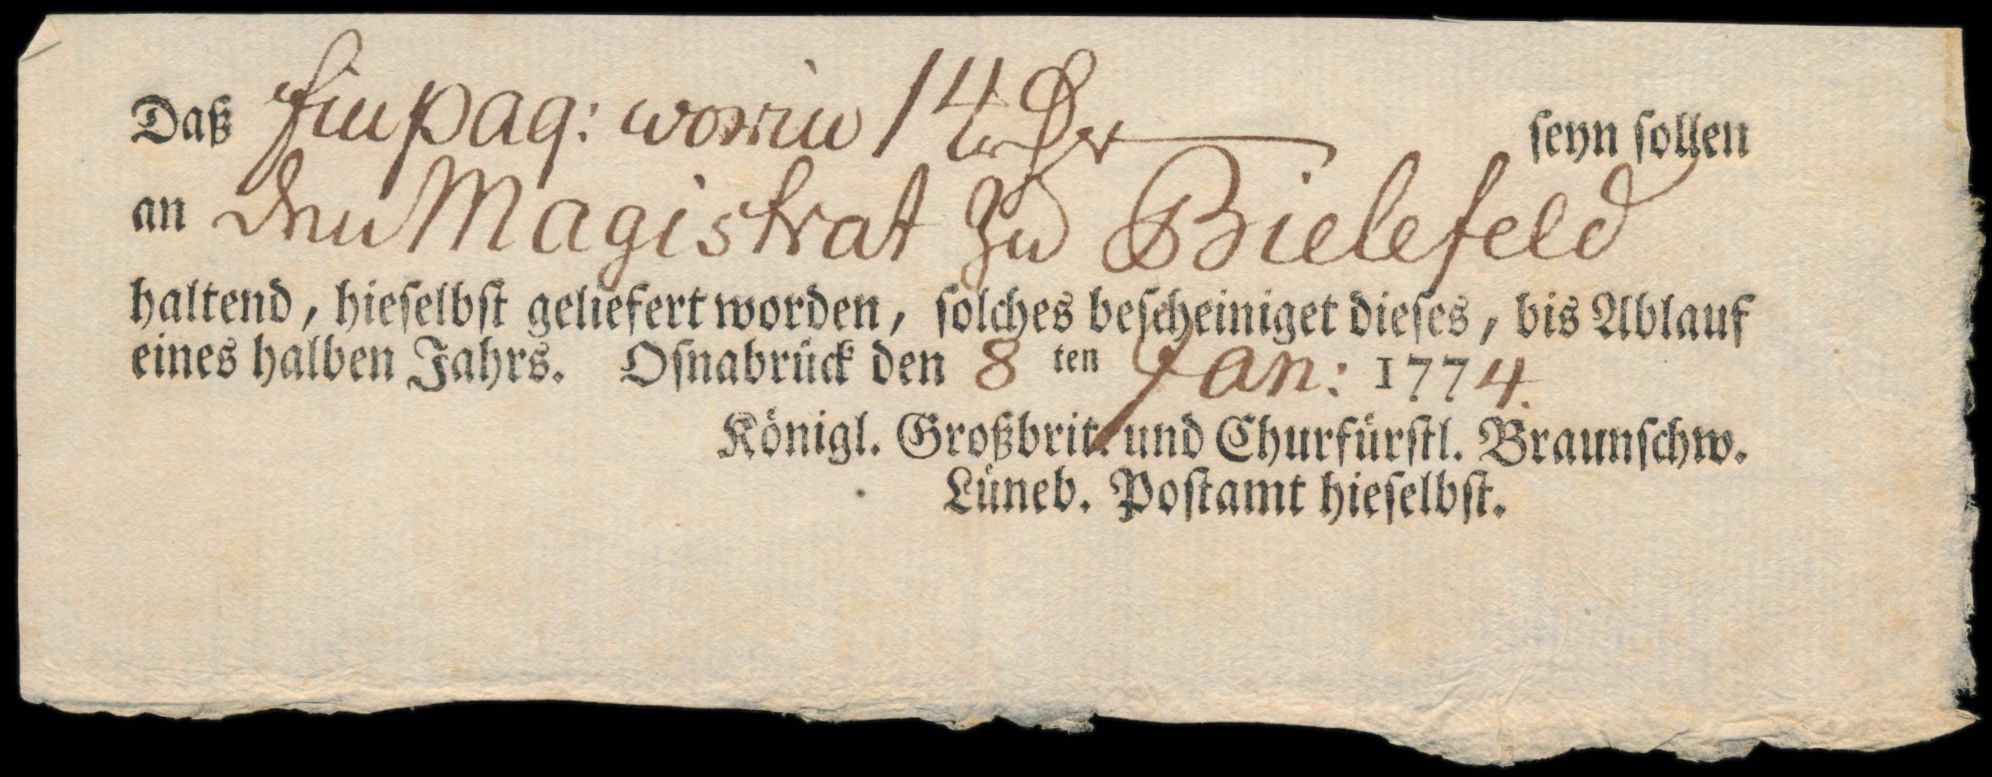 Daß ein paq: worin 14 seyn sollen
an den Magistrat zu Bielefeld
haltend, hieselbst geliefert worden, solches bescheiniget dieses, bis Ablauf
eines halben Jahrs. Osnabrück den 8 ten Jan: 1774.
Königl. Großbrit. und Churfürstl. Braunschw.
Lüneb. Postamt hieselbst.